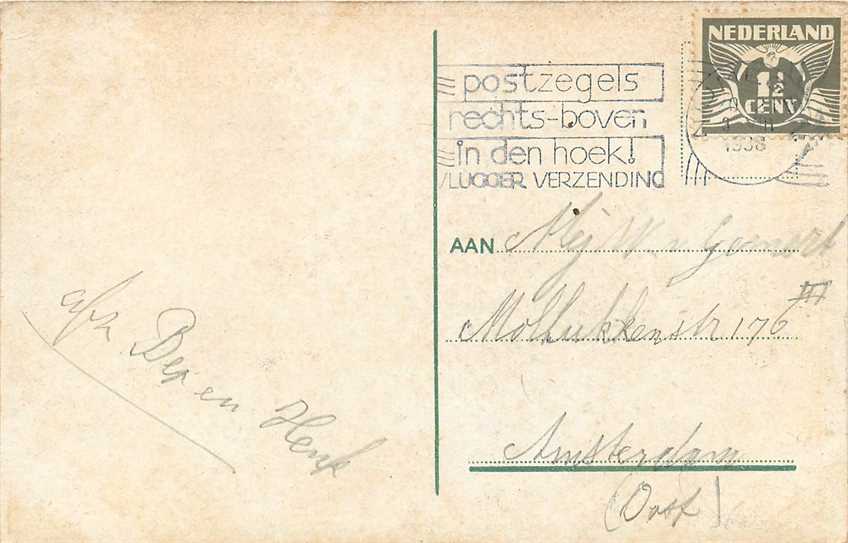 NEDERLAND
1½
CENT
1938
postzegels
rechts-boven
in den hoek!
VLUGGER VERZENDING
AAN Mej
Molukkenstr 176 III
Amsterdam
(Oost)
afz Bep en Henk